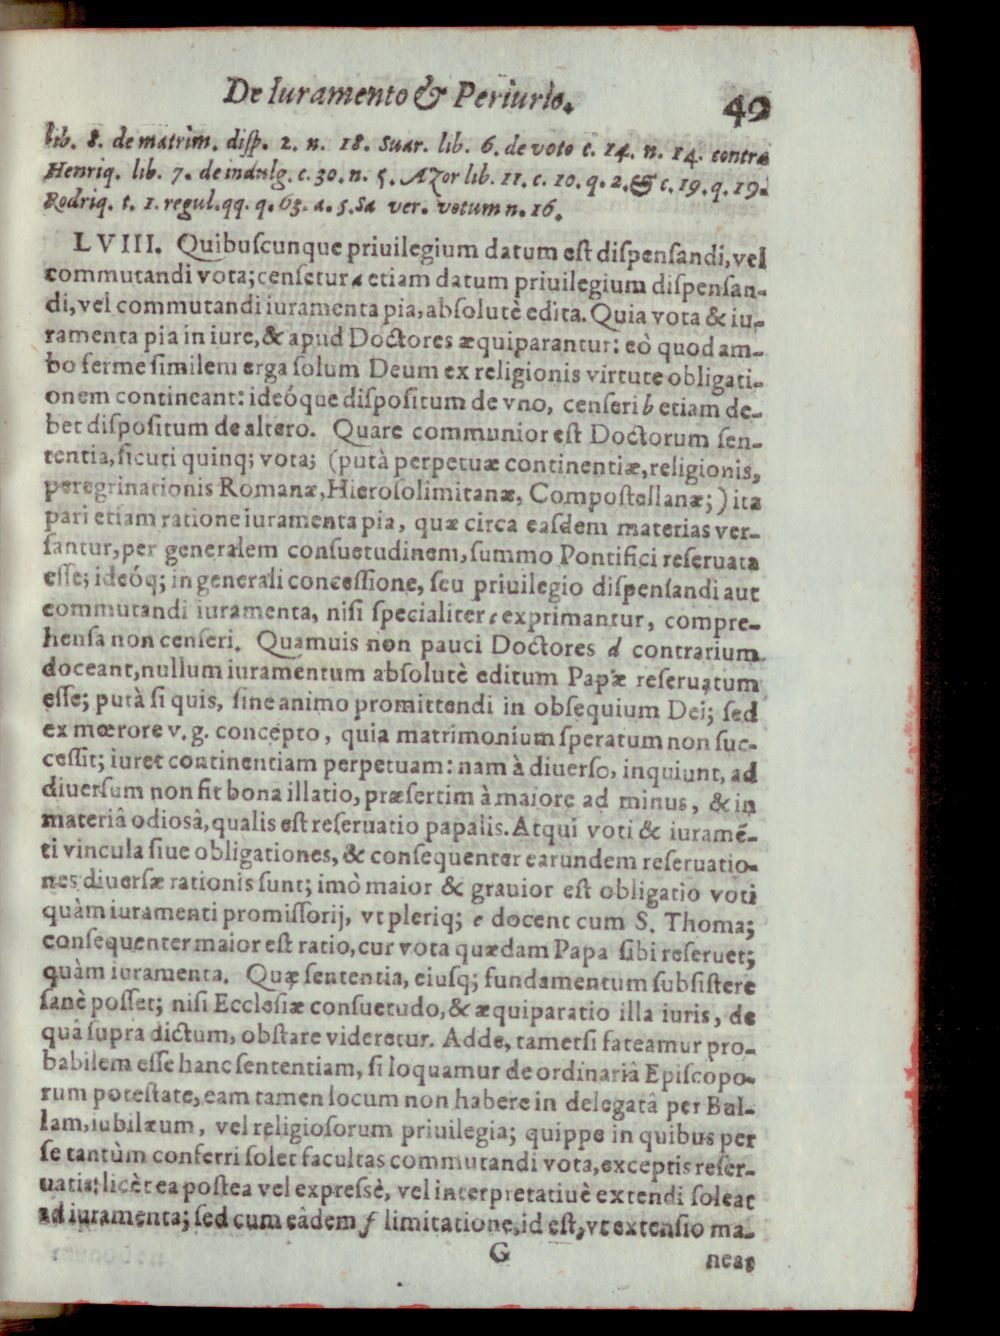 De Iuramento & Periurio. 49
lib. 8. de matrim. disp. 2. n. 18. Suar. lib. 6. de voto c. 14. n. 14. contra
Henriq. lib. 7. de indulg. c. 30. n. 5. Azor lib. 11. c. 10. q. 2. & c. 19. q. 19.
Rodriq. t. 1. regul. qq. q. 63. a. 5. Sa ver. votum n. 16.
LVIII. Quibuscunque priuilegium datum est dispensandi, vel
commutandi vota; censetur a etiam datum priuilegium dispensan-
di, vel commutandi iuramenta pia, absolutè edita. Quia vota & iu-
ramenta pia in iure, & apud Doctores æquiparantur: eò quod am-
bo ferme similem erga solum Deum ex religionis virtute obligati-
onem contineant: ideóque dispositum de vno, censeri b etiam de-
bet dispositum de altero. Quare communior est Doctorum sen-
tentia, sicuti quinq; vota; (putà perpetuæ continentiæ, religionis,
peregrinationis Romanæ, Hierosolimitanæ, Compostellanæ;) ita
pari etiam ratione iuramenta pia, quæ circa easdem materias ver-
santur, per generalem consuetudinem, summo Pontifici reseruata
esse; ideóq; in generali concessione, seu priuilegio dispensandi aut
commutandi iuramenta, nisi specialiter c exprimantur, compre-
hensa non censeri. Quamuis non pauci Doctores d contrarium
doceant, nullum iuramentum absolutè editum Papæ reseruatum
esse; putà si quis, sine animo promittendi in obsequium Dei; sed
ex mœrore v. g. concepto, quia matrimonium speratum non suc-
cessit; iuret continentiam perpetuam: nam à diuerso, inquiunt, ad
diuersum non fit bona illatio, præsertim à maiore ad minus, & in
materiâ odiosâ, qualis est reseruatio papalis. Atqui voti & iuramē-
ti vincula siue obligationes, & consequenter earundem reseruatio-
nes diuersæ rationis sunt; imò maior & grauior est obligatio voti
quàm iuramenti promissorij, vt pleriq; e docent cum S. Thoma;
consequenter maior est ratio, cur vota quædam Papa sibi reseruet;
quàm iuramenta. Quę sententia, eiusq; fundamentum subsistere
sanè posset; nisi Ecclesiæ consuetudo, & æquiparatio illa iuris, de
quâ supra dictum, obstare videretur. Adde, tametsi fateamur pro-
babilem esse hanc sententiam, si loquamur de ordinariâ Episcopo-
rum potestate, eam tamen locum non habere in delegatâ per Bul-
lam, iubilæum, vel religiosorum priuilegia; quippe in quibus per
se tantùm conferri solet facultas commutandi vota, exceptis reser-
uatis; licèt ea postea vel expressè, vel interpretatiuè extendi soleat
ad iuramenta; sed cum eâdem f limitatione, id est, vt extensio ma-
G neat